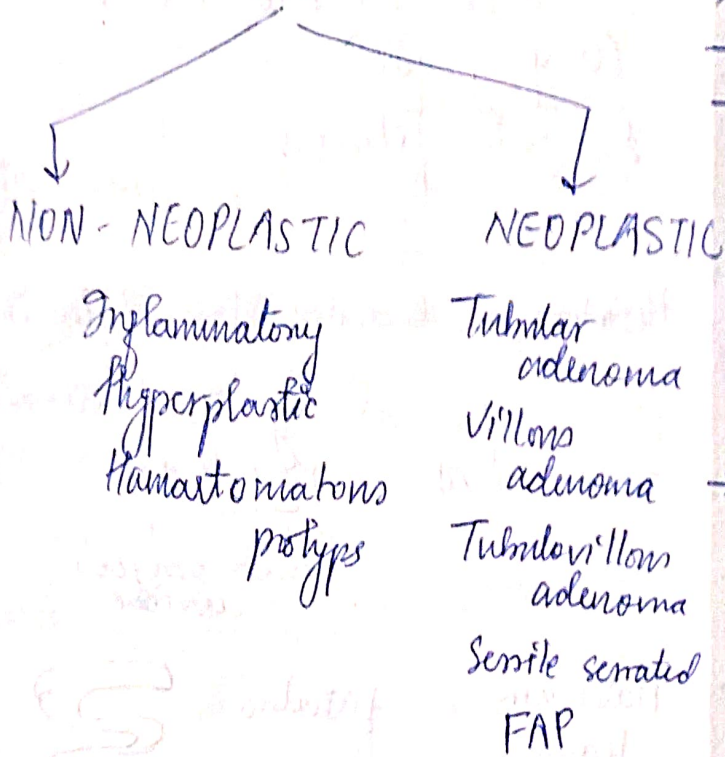 NON - NEOPLASTIC
Inflammatory
Hyperplastic
Hamartomatous
polyps
NEOPLASTIC
Tubular
adenoma
Villous
adenoma
Tubulovillous
adenoma
Sessile serrated
FAP